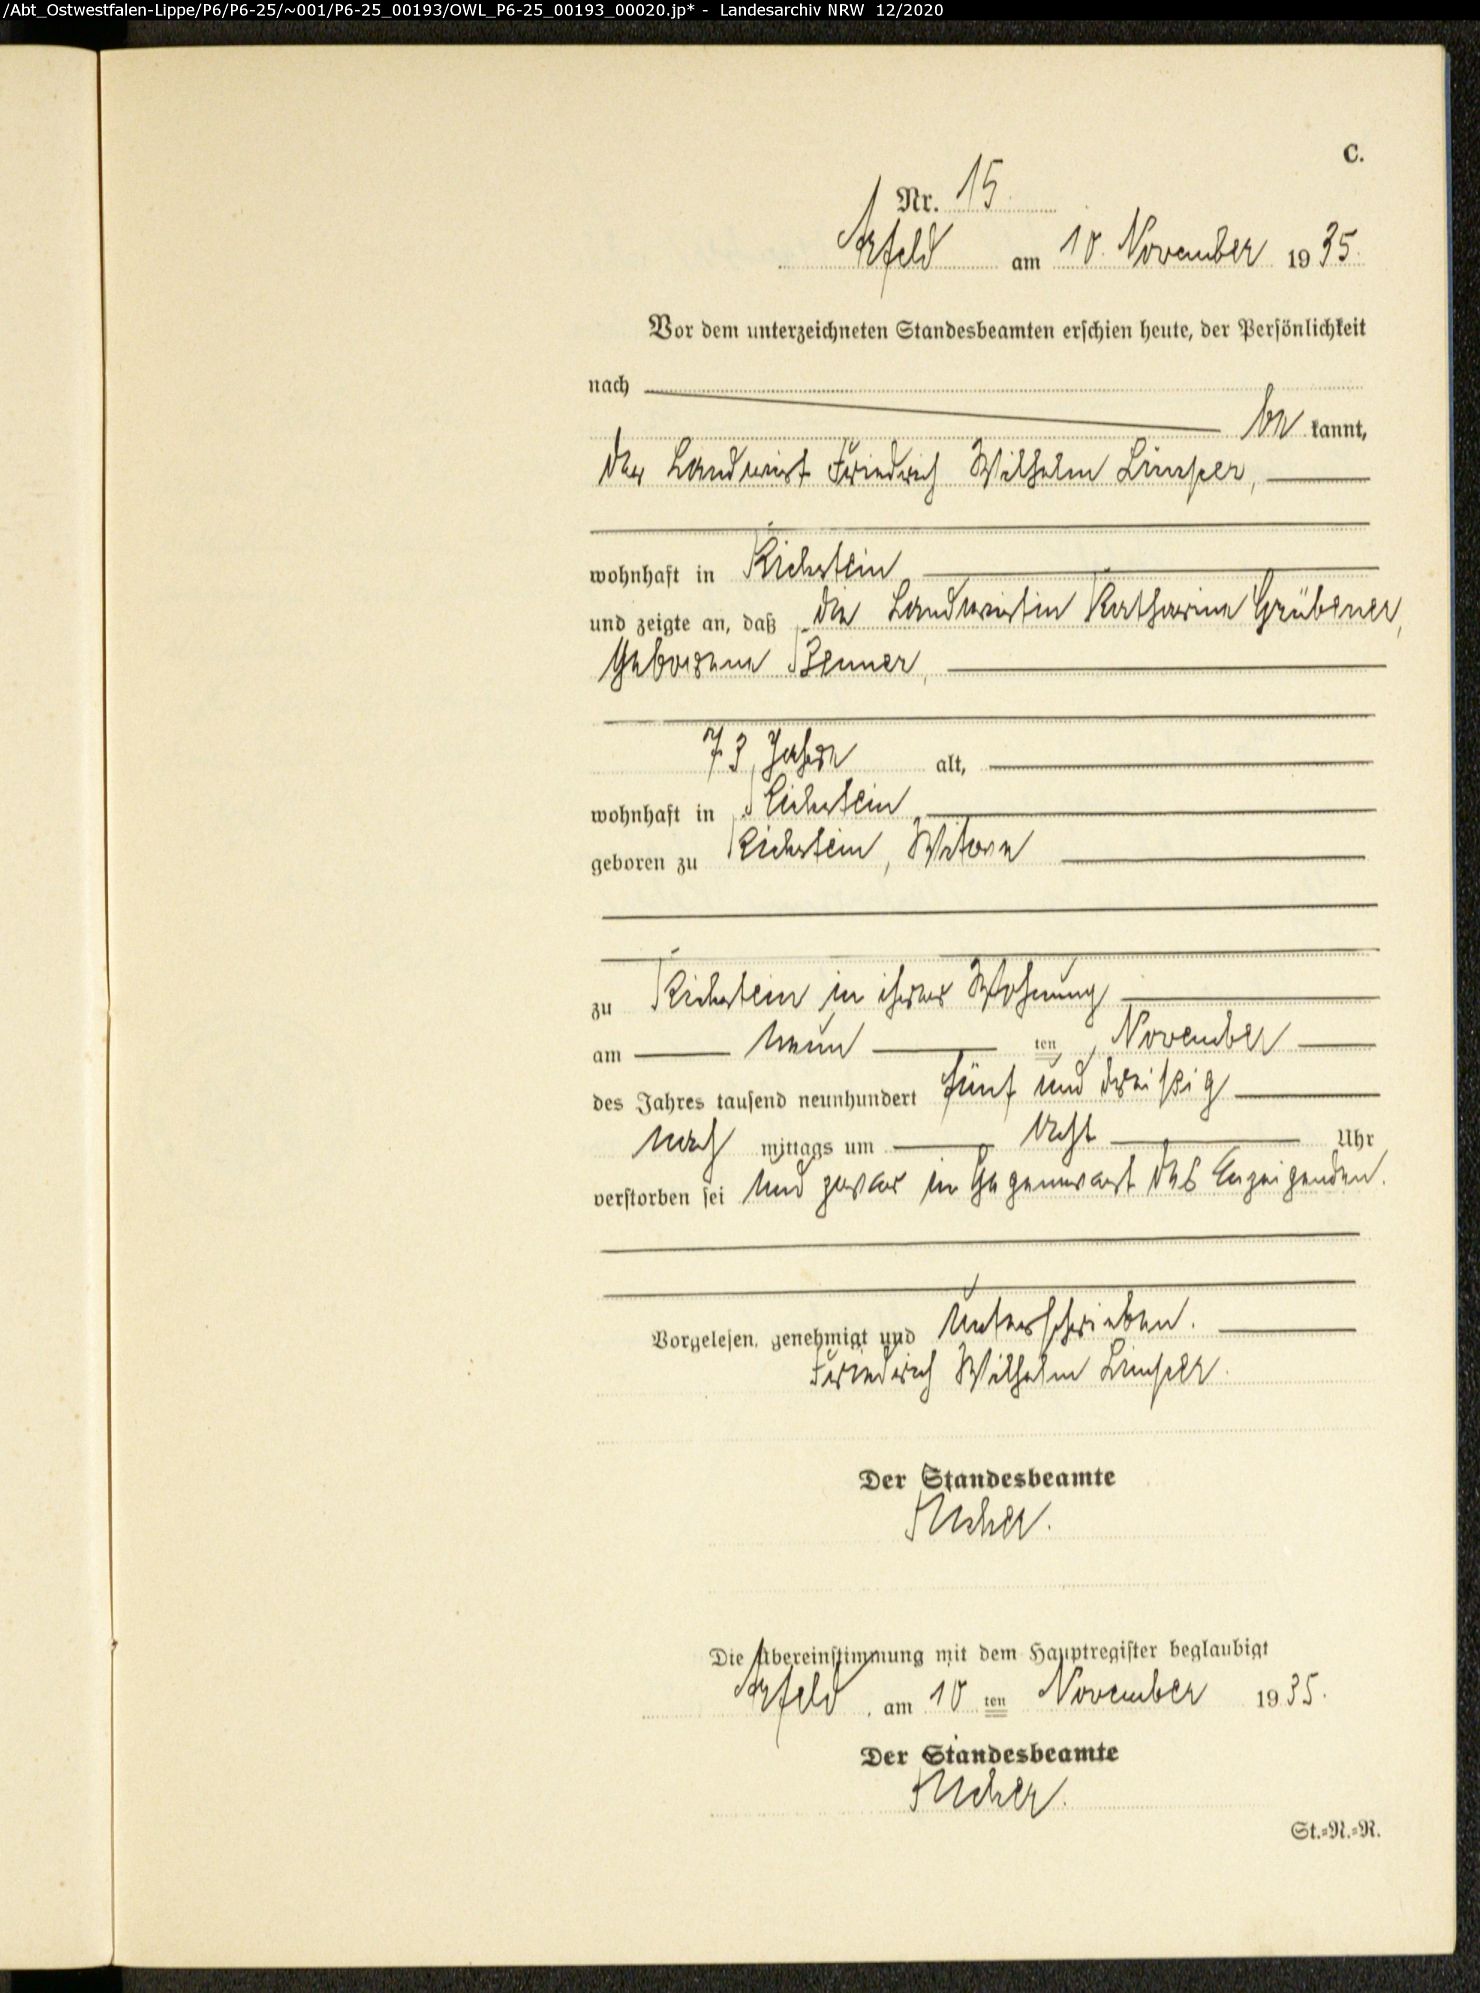 /Abt_Ostwestfalen-Lippe/P6/P6-25/~001/P6-25_00193/OWL_P6-25_00193_00020.jp* - Landesarchiv NRW 12/2020
C.
Nr. 15
Arfeld am 10. November 1935.
Vor dem unterzeichneten Standesbeamten erschien heute, der Persönlichkeit
nach
be kannt,
der Landwirt Friedrich Wilhelm Limper,
wohnhaft in Richstein
und zeigte an, daß die Landwirtin Katharine Grübener,
Geborene Benner,
73 Jahre alt,
wohnhaft in Richstein
geboren zu Richstein, Witwe
zu Richstein in ihrer Wohnung
am neun ten November
des Jahres tausend neunhundert fünf und dreißig
nach mittags um acht Uhr
verstorben sei und zwar in Gegenwart des Anzeigenden.
Vorgelesen, genehmigt und unterschrieben.
Friedrich Wilhelm Limper.
Der Standesbeamte
Die Übereinstimmung mit dem Hauptregister beglaubigt
Arfeld, am 10 ten November 1935.
Der Standesbeamte
St.=R.=R.